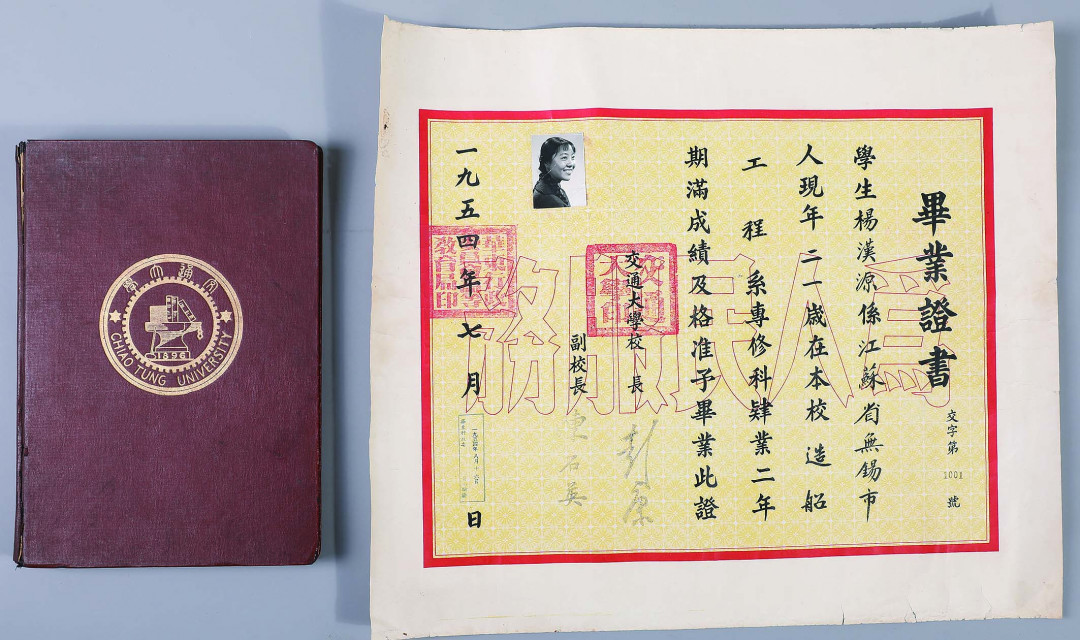 學大通交
CHIAO TUNG UNIVERSITY
1896
畢業證書
交字第1001號
學生楊漢源係江蘇省無錫市
人現年二一歲在本校造船
工程系專修科肄業二年
期滿成績及格准予畢業此證
交通大學校長
彭康
副校長
石英
一九五四年七月日
為人民服務
交通大學